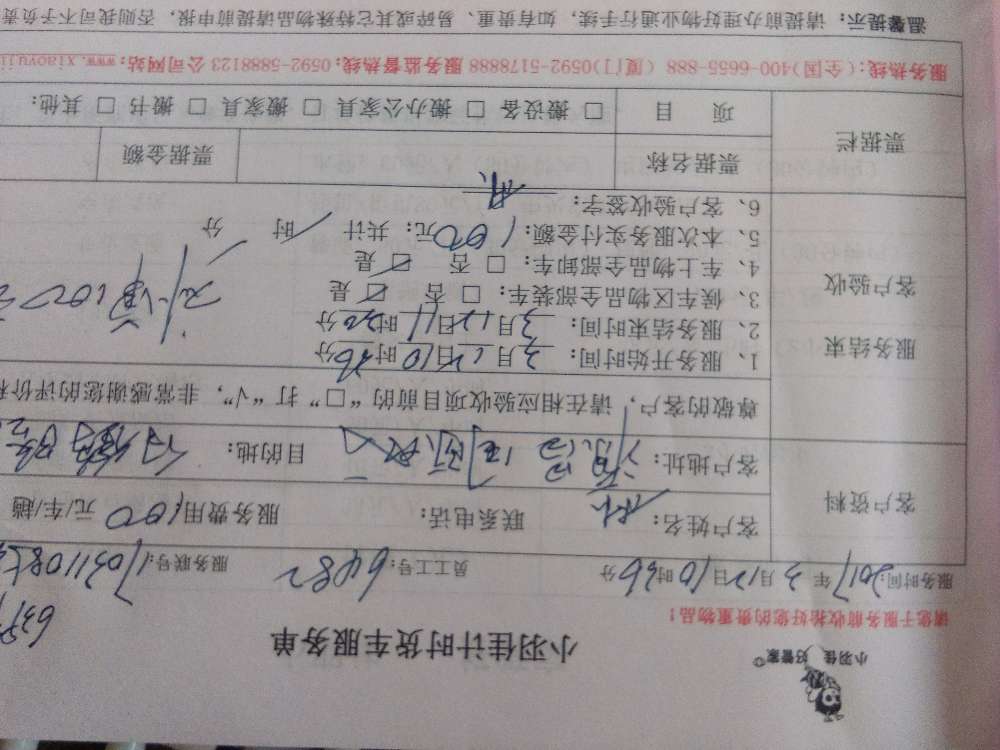 小羽佳 好管家
小羽佳计时货车服务单
请您于服务前收拾好您的贵重物品！
服务时间：2017年3月12日10时36分 员工工号：6482 服务联号：
客户资料
客户姓名： 联系电话： 服务费用100元/车/趟
客户地址： 目的地：
尊敬的客户，请在相应验收项目前的“□”打“√”，非常感谢您的评价和
服务结束
客户验收
1、服务开始时间：3月12日10时36分
2、服务结束时间：3月12日11时20分
3、候车区物品全部装车：□否 ☑是
4、车上物品全部卸车：□否 ☑是
5、本次服务实付金额：100元；共计 时 分
6、客户验收签字：
票据栏
票据名称 票据金额
项 目 □搬设备 □搬办公家具 □搬家具 □搬书 □其他：
服务热线：(全国)400-6655-888（厦门)0592-5178888 服务监督热线：0592-5888123 公司网站：www.xiaoyuji
温馨提示：请提前办理好物业通行手续，如有贵重、易碎或其它特殊物品请提前申报，否则我司不予负责